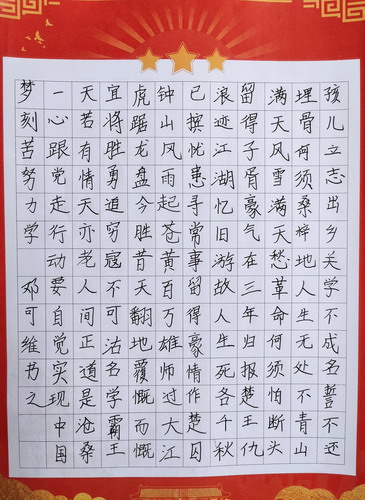 孩儿立志出乡关学不成名誓不还
埋骨何须桑梓地人生无处不青山
满天风雪满天愁革命何须怕断头
留得子胥豪气在三年归报楚王仇
浪迹江湖忆旧游故人生死各千秋
已摈忧患寻常事留得豪情作楚囚
钟山风雨起苍黄百万雄师过大江
虎踞龙盘今胜昔天翻地覆慨而慨
宜将胜勇追穷寇不可沽名学霸王
天若有情天亦老人间正道是沧桑
一心跟党走行动要自觉实现中国
梦刻苦努力学 邓可维书之